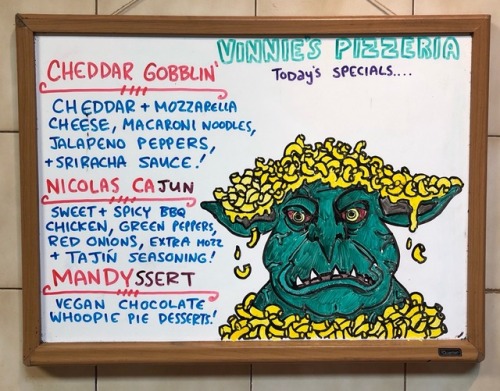 VINNIE'S PIZZERIA
TODAY'S SPECIALS....
CHEDDAR GOBBLIN'
CHEDDAR + MOZZARELLA
CHEESE, MACARONI NOODLES,
JALAPENO PEPPERS,
+ SRIRACHA SAUCE!
NICOLAS CAJUN
SWEET + SPICY BBQ
CHICKEN, GREEN PEPPERS,
RED ONIONS, EXTRA MOZZ
+ TAJIN SEASONING!
MANDYSSERT
VEGAN CHOCOLATE
WHOOPIE PIE DESSERTS!